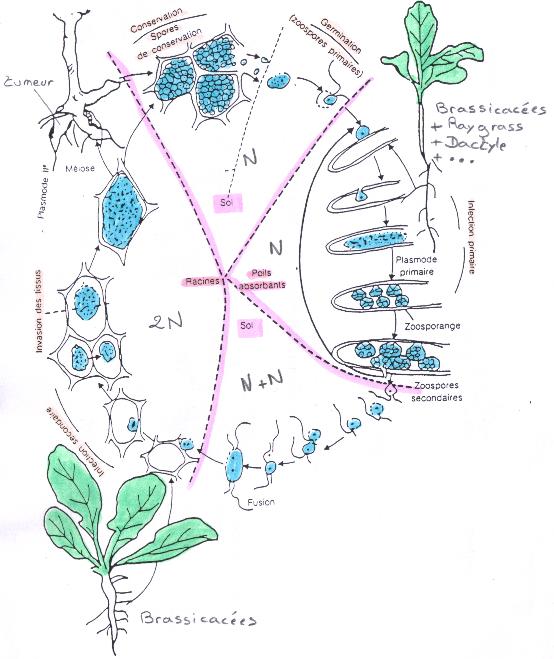 Conservation
Spores
de conservation
Germination
(zoospores primaires)
Tumeur
Brassicacées
+ Ray grass
+ Dactyle
+ ...
Plasmode II^re
Méiose
N
Sol
Infection primaire
N
Plasmode
primaire
Racines
Poils
absorbants
Invasion des tissus
2N
Sol
Zoosporange
N+N
Zoospores
secondaires
Infection secondaire
Fusion
Brassicacées